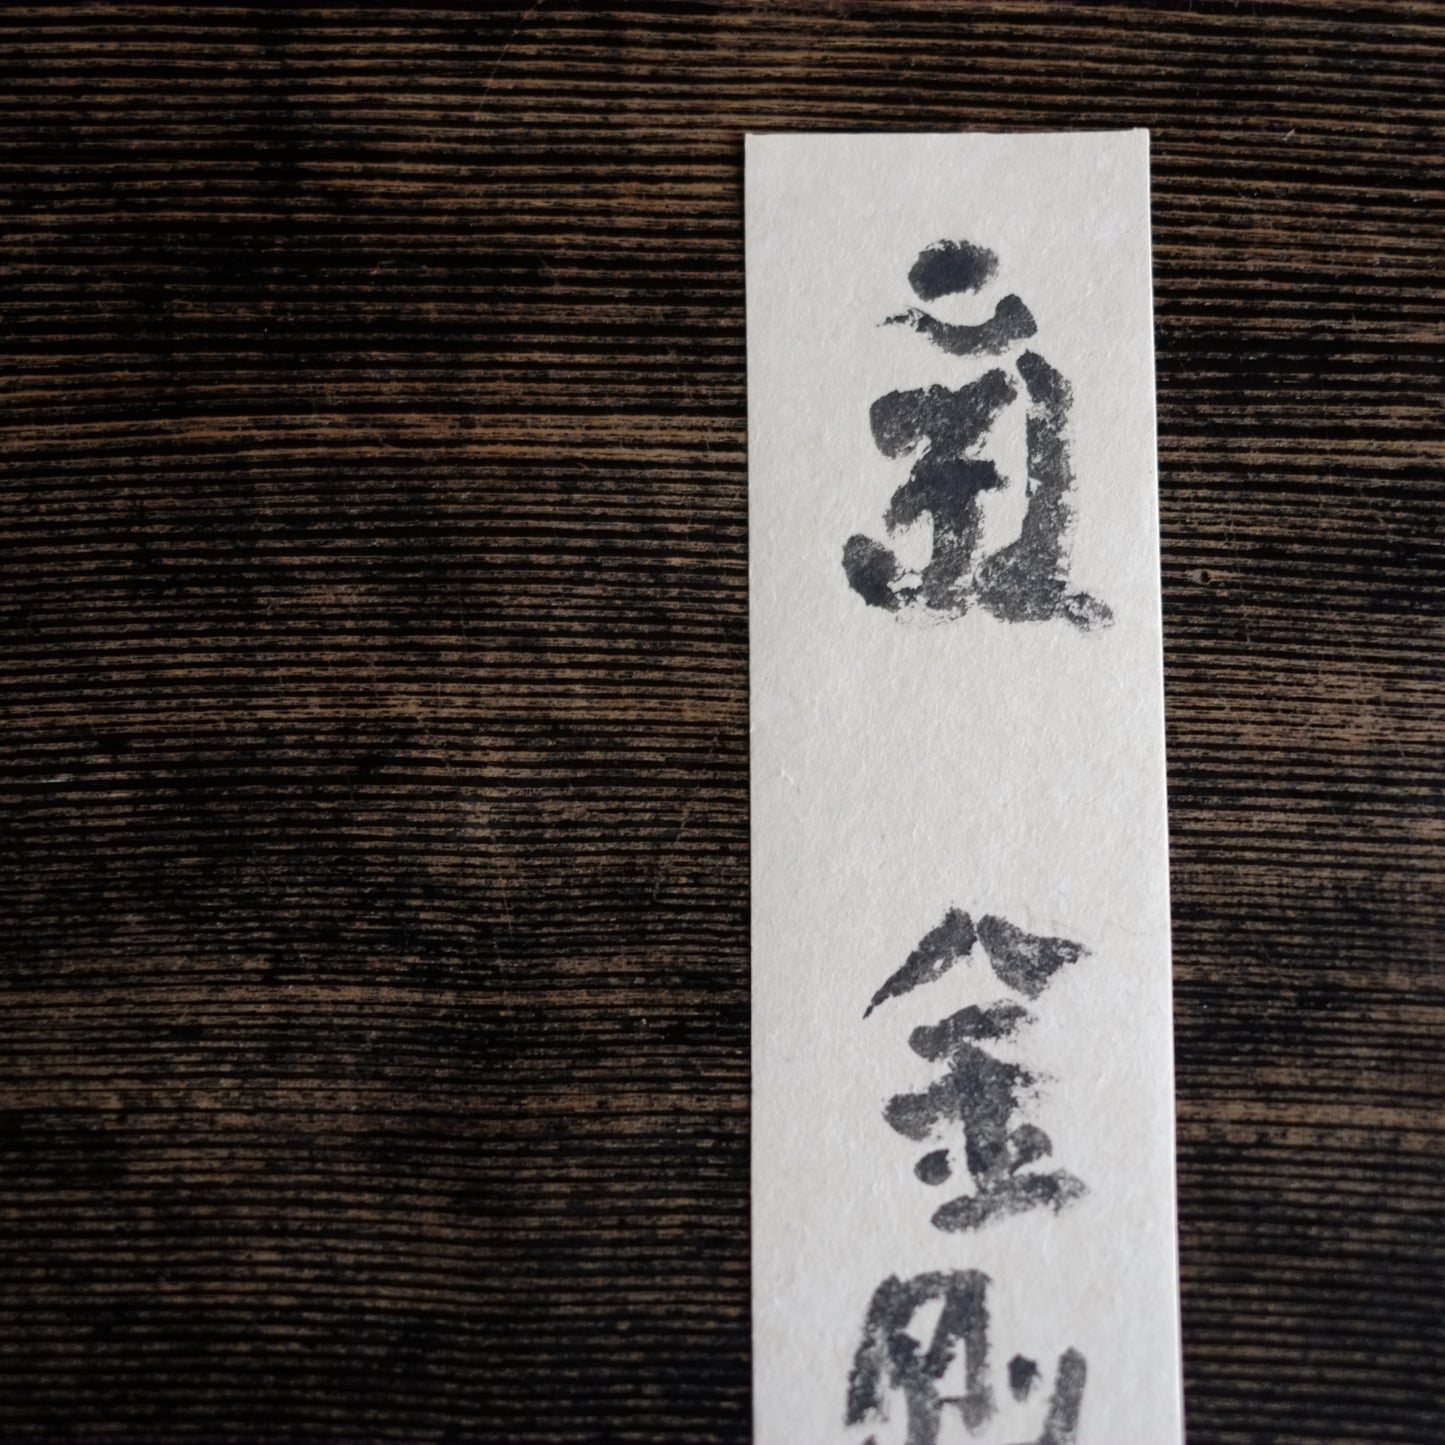 𑖮𑖳𑖽 金剛